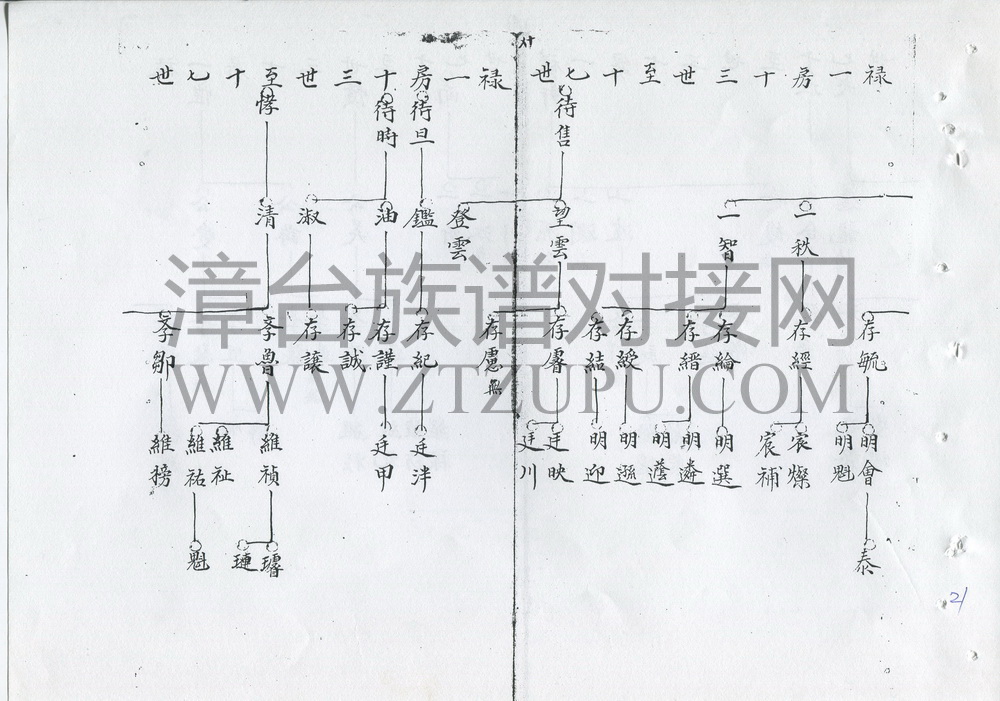 禄一房十三世至十七世
待售
一秩
一智
望雲
登雲
存毓
存經
存綸
存縉
存綬
存結
存睿
存慮無
明會
明魁
宸燦
宸補
明選
明遴
明蓬
明遜
明迎
廷映
廷川
泰
禄一房十三世至十七世
待旦
待時
慘
鑑
油
淑
清
存紀
存謹
存誠
存讓
孝魯
孝鄒
廷泮
廷甲
維禎
維祉
維祐
維榜
璿
璉
魁
漳台族谱对接网
WWW.ZTZUPU.COM
21